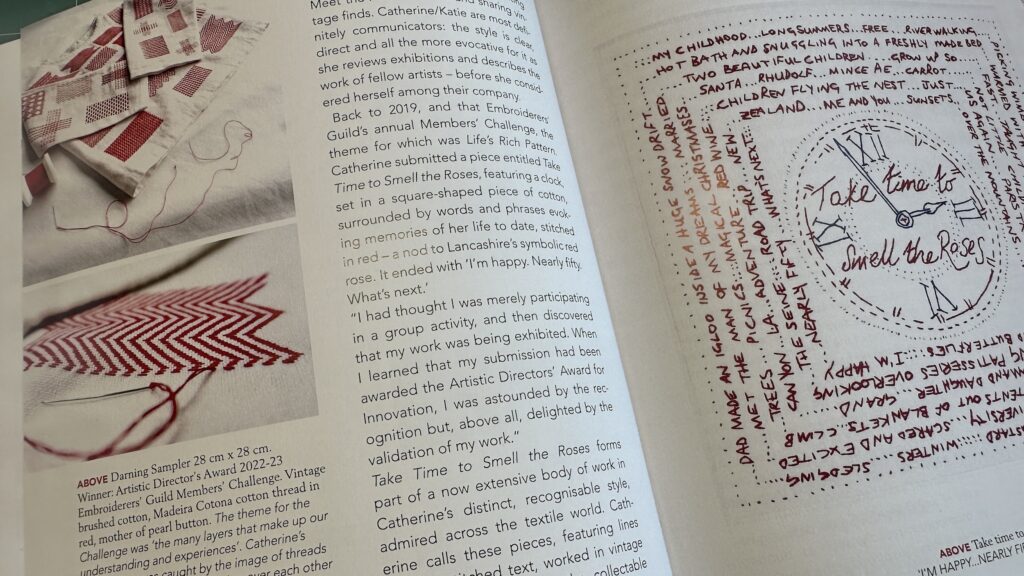 tage finds. Catherine/Katie are most defi-
nitely communicators: the style is clear,
direct and all the more evocative for it as
she reviews exhibitions and describes the
work of fellow artists – before she consid-
ered herself among their company.
Back to 2019, and that Embroiderers'
Guild's annual Members' Challenge, the
theme for which was Life's Rich Pattern.
Catherine submitted a piece entitled Take
Time to Smell the Roses, featuring a clock,
set in a square-shaped piece of cotton,
surrounded by words and phrases evok-
ing memories of her life to date, stitched
in red – a nod to Lancashire's symbolic red
rose. It ended with 'I'm happy. Nearly fifty.
What's next.'
"I had thought I was merely participating
in a group activity, and then discovered
that my work was being exhibited. When
I learned that my submission had been
awarded the Artistic Directors' Award for
Innovation, I was astounded by the rec-
ognition but, above all, delighted by the
validation of my work."
Take Time to Smell the Roses forms
part of a now extensive body of work in
Catherine's distinct, recognisable style,
admired across the textile world. Cath-
erine calls these pieces, featuring lines
text, worked in vintage
collectable
ABOVE Darning Sampler 28 cm x 28 cm.
Winner: Artistic Director's Award 2022-23
Embroiderers' Guild Members' Challenge. Vintage
brushed cotton, Madeira Cotona cotton thread in
red, mother of pearl button. The theme for the
Challenge was 'the many layers that make up our
understanding and experiences'. Catherine's
caught by the image of threads
over each other
MY CHILDHOOD...LONG SUMMERS...FREE...RIVER WALKING
HOT BATH AND SNUGGLING INTO A FRESHLY MADE BED
TWO BEAUTIFUL CHILDREN....GROW UP SO
SANTA...RHUDOLF...MINCE CARROT
CHILDREN FLYING THE NEST...JUST
ZEALAND...ME AND YOU...SUNSETS
DAD MADE AN IGLOO INSIDE A HUGE SNOW DRIFT
MET THE MAN OF MY DREAMS...MARRIED
PICNICS...MAGICAL CHRISTMASES
TREES...LA...ADVENTURE...RED WINE
CAN YOU SEE...ROAD TRIP...NEW
THE SEVENTY
NEARLY FIFTY WHATS NEXT
Take time to
Smell the Roses
XII
III
VI
IX
BUTTERFLIES...I'M HAPPY
PATISSERIES OVERLOOKING
AND DAUGHTER...GRAND
TENTS OUT OF BLANKETS...CLIMB
SCARED AND EXCITED
WINTERS
SLEDGING
ABOVE Take time to
'I'M HAPPY...NEARLY FI